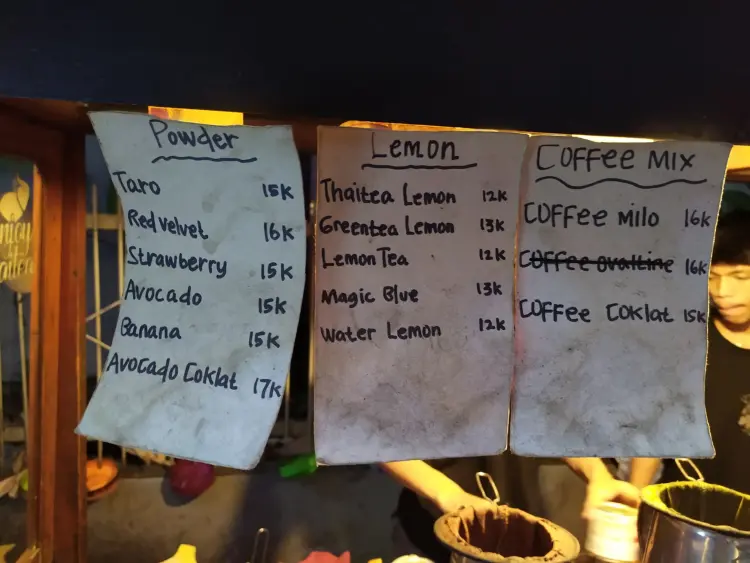 Powder
Taro 15K
Redvelvet 16K
Strawberry 15K
Avocado 15K
Banana 15K
Avocado Coklat 17K
Lemon
Thaitea Lemon 12K
Greentea Lemon 13K
Lemon Tea 12K
Magic Blue 13K
Water Lemon 12K
COFFee MIX
COFFee MILO 16K
COFFee ovaltine 16K
COFFee Coklat 15K